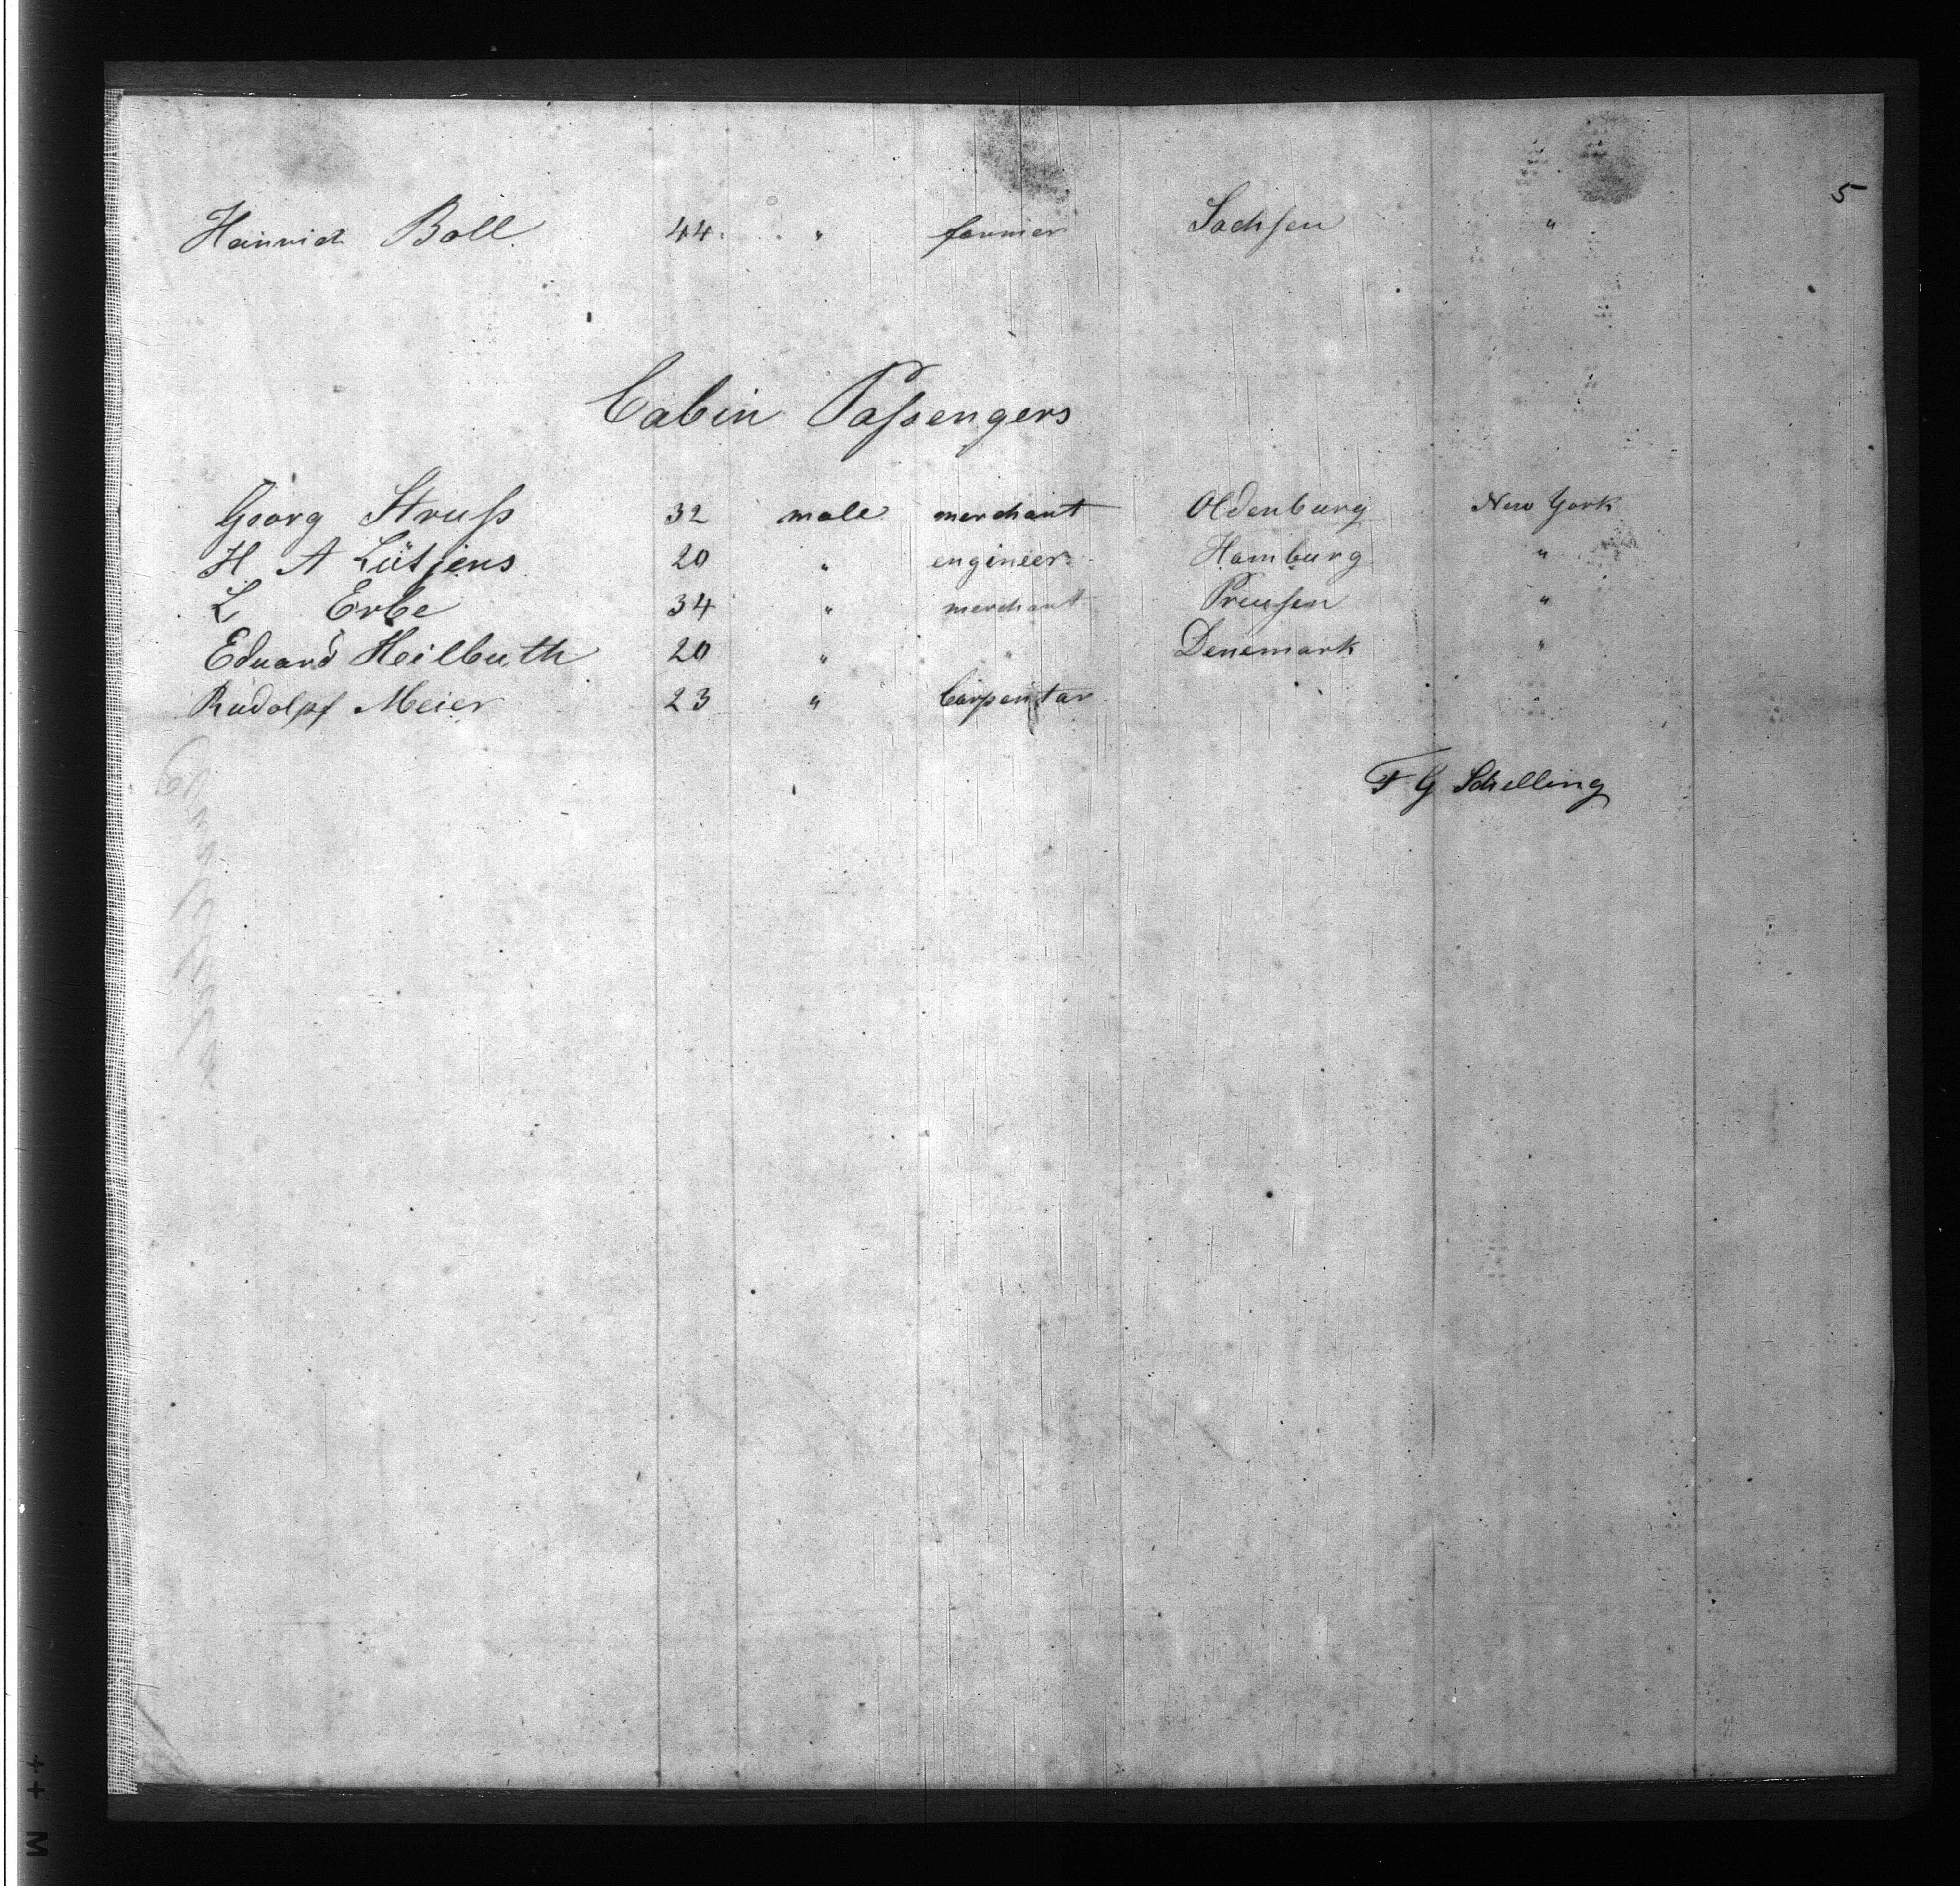 5
Heinrich Boll 44 " farmer Sachsen "
Cabin Passengers
Georg Struss 32 male merchant Oldenburg New York
H A Lütjens 20 " engineer Hamburg "
L Erbe 34 " merchant Preussen "
Eduard Heilbuth 20 " " Denemark "
Rudolpf Meier 23 " Carpentar " "
F G Schelling